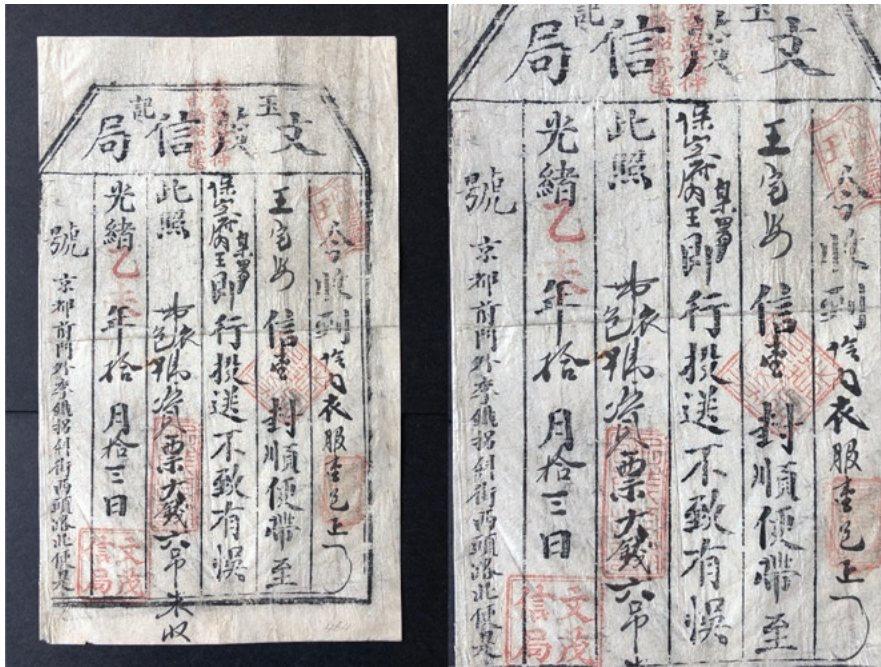 玉記
文茂信局
今收到 衣服壹包上
王宅 信壹封順便帶至
保定府內王臬署即行投送不致有悞
此照 布衣包 資票大錢六吊未收
光緒乙未年拾月拾三日
號 京都前門外李鐵拐斜街西頭路北便是
文茂信局
玉記
文茂信局
今收到 衣服壹包上
王宅 信壹封順便帶至
保定府內王臬署即行投送不致有悞
此照 布衣包 資票大錢六吊
光緒乙未年拾月拾三日
號 京都前門外李鐵拐斜街西頭路北便是
文茂信局